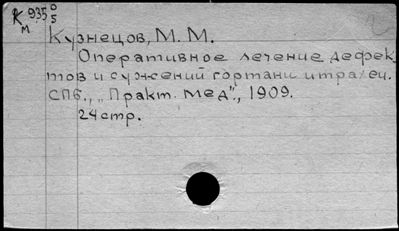 К 935 0/5
м
Кузнецов, М. М.
Оперативное лечение дефек-
тов и сужений гортани и трахеи.
СПб., „Практ. мед"., 1909.
24 стр.